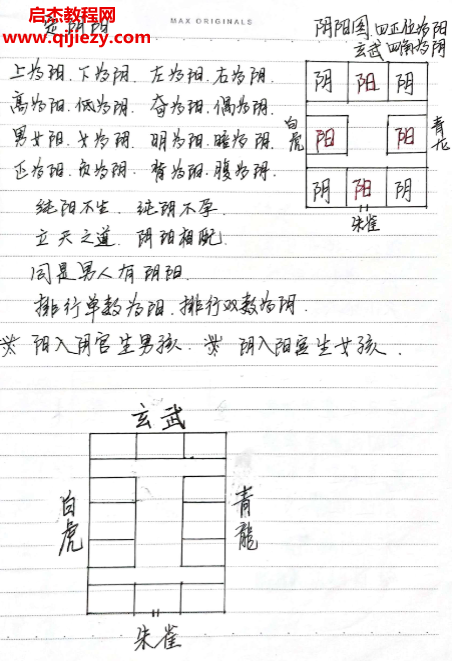 启杰教程网
www.qijiezy.com
MAX ORIGINALS
定阴阳
阴阳图.四正位为阳
玄武 四角为阴
上为阳.下为阴. 左为阳.右为阴.
高为阳.低为阴. 奇为阳.偶为阴.
男为阳.女为阴. 明为阳.暗为阴.
正为阳.负为阴. 背为阳.腹为阴.
纯阳不生. 纯阴不孕.
立天之道. 阴阳相配.
同是男人有阴阳.
排行单数为阳.排行双数为阴.
阳入阴宫生男孩. 阴入阳宫生女孩.
阴 阳 阴
白虎
阳 阳
青龙
阴 阳 阴
朱雀
玄武
白虎
青龍
朱雀